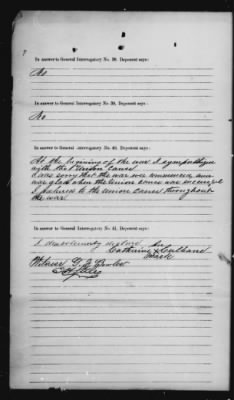 In answer to General Interrogatory No. 38, Deponent says:
No
In answer to General Interrogatory No. 39, Deponent says:
No
In answer to General Interrogatory No. 40, Deponent says:
At the begining of the war I sympathized
with the Union cause
I was sorry that the war was commenced and
was glad when the Union
I adhered to the Union cause throughout
the war
In answer to General Interrogatory No. 41, Deponent says:
I
her
Catharine X
mark
Witness